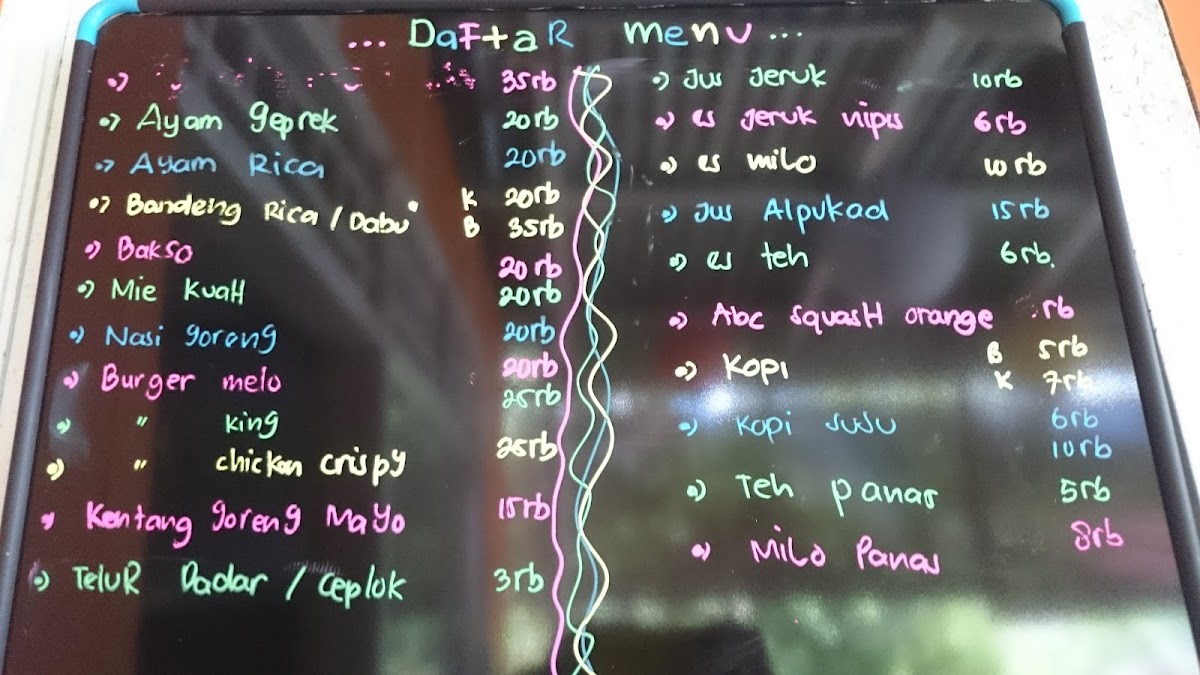 ... Daftar menu ...
35rb
Ayam geprek 20rb
Ayam Rica 20rb
Bandeng Rica / Dabu" K 20rb
B 35rb
Bakso 20rb
Mie KuaH 20rb
Nasi goreng 20rb
Burger melo 20rb
" king 25rb
" chicken crispy 25rb
Kentang goreng Mayo 15rb
TeluR Dadar / ceplok 3rb
Jus Jeruk 10rb
es Jeruk nipis 6rb
es milo 10rb
Jus Alpukad 15rb
es teh 6rb.
Abc squasH orange rb
Kopi B 5rb
K 7rb
Kopi susu 6rb
10rb
Teh panas 5rb
Milo Panas 8rb